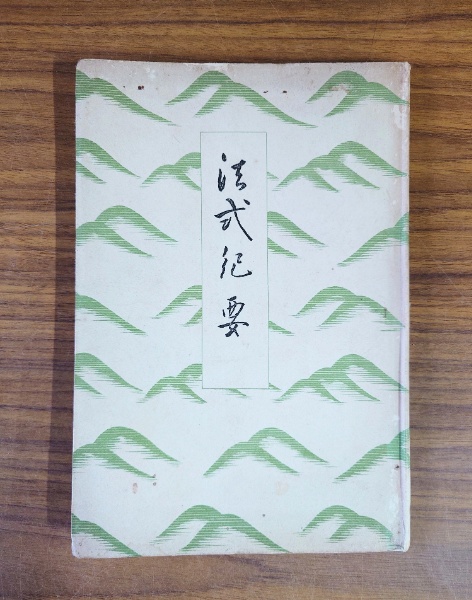 法式紀要